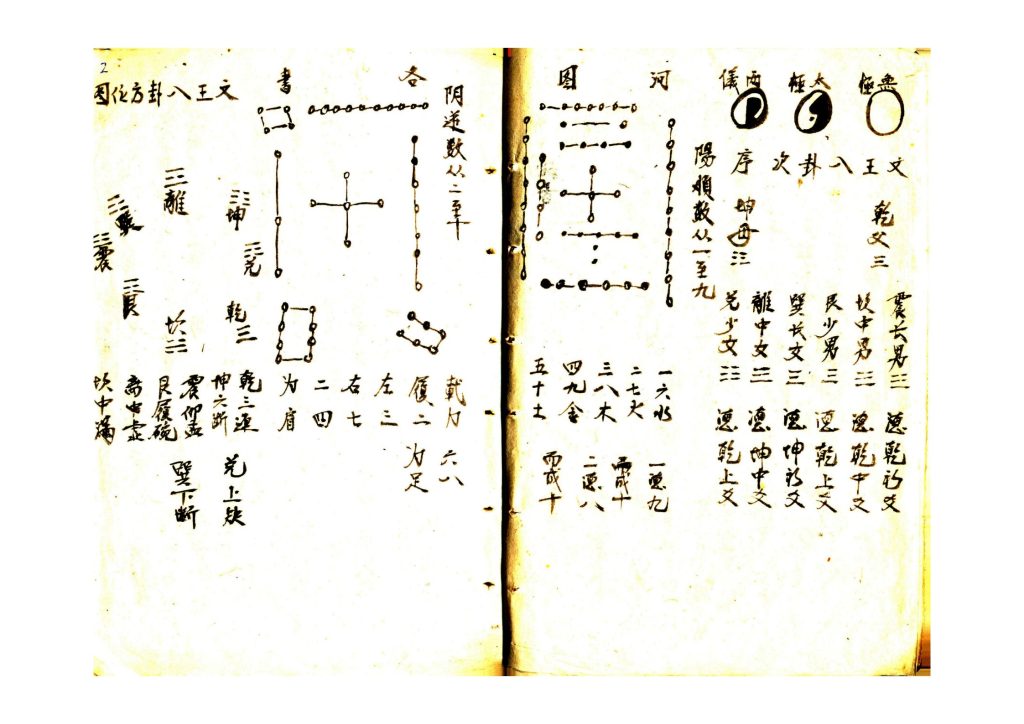 無極
太極
兩儀
文王八卦次序
乾父☰
坤母☷
震长男☳ 得乾初爻
坎中男☵ 得乾中爻
艮少男☶ 得乾上爻
巽长女☴ 得坤初爻
離中女☲ 得坤中爻
兑少女☱ 得乾上爻
陽順数从一至九
河图
一六水
二七火
三八木
四九金
五十土
一得九
而成十
二得八
而成十
阴逆数从二至十
各書
載九
履二
左三
右七
二四
为肩
六八
为足
2
文王八卦方位图
離
坤
兑
乾
坎
艮
震
巽
乾三連
坤六断
震仰盂
艮履碗
离中虚
坎中滿
兑上缺
巽下断